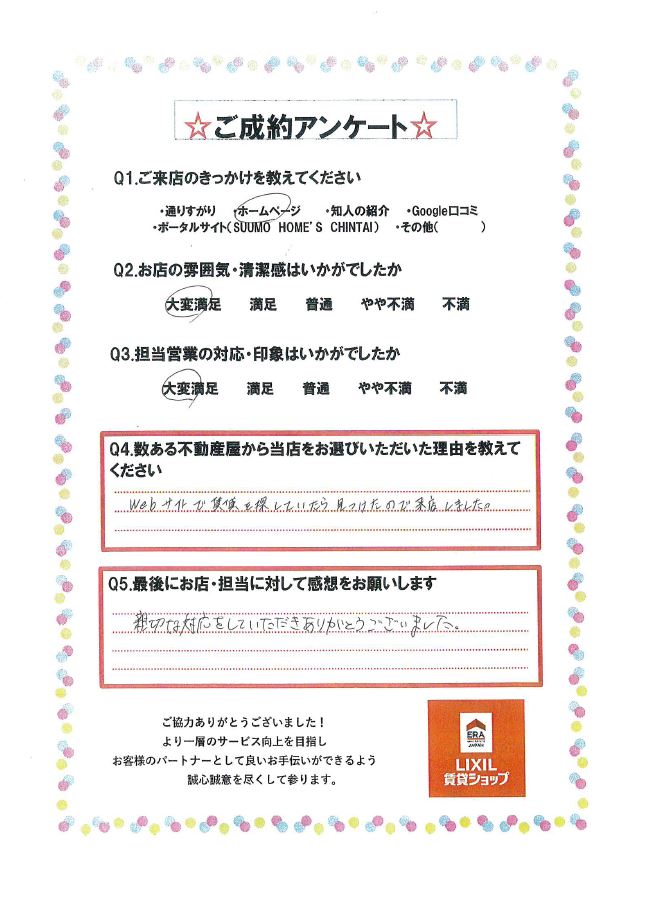 ☆ご成約アンケート☆
Q1.ご来店のきっかけを教えてください
・通りすがり ・ホームページ ・知人の紹介 ・Google口コミ
・ポータルサイト(SUUMO HOME'S CHINTAI) ・その他( )
Q2.お店の雰囲気・清潔感はいかがでしたか
大変満足 満足 普通 やや不満 不満
Q3.担当営業の対応・印象はいかがでしたか
大変満足 満足 普通 やや不満 不満
Q4.数ある不動産屋から当店をお選びいただいた理由を教えて
ください
Webサイトで賃貸を探していたら見つけたので来店しました。
Q5.最後にお店・担当に対して感想をお願いします
親切な対応をしていただきありがとうございました。
ご協力ありがとうございました!
より一層のサービス向上を目指し
お客様のパートナーとして良いお手伝いができるよう
誠心誠意を尽くして参ります。
ERA
JAPAN
LIXIL
賃貸ショップ